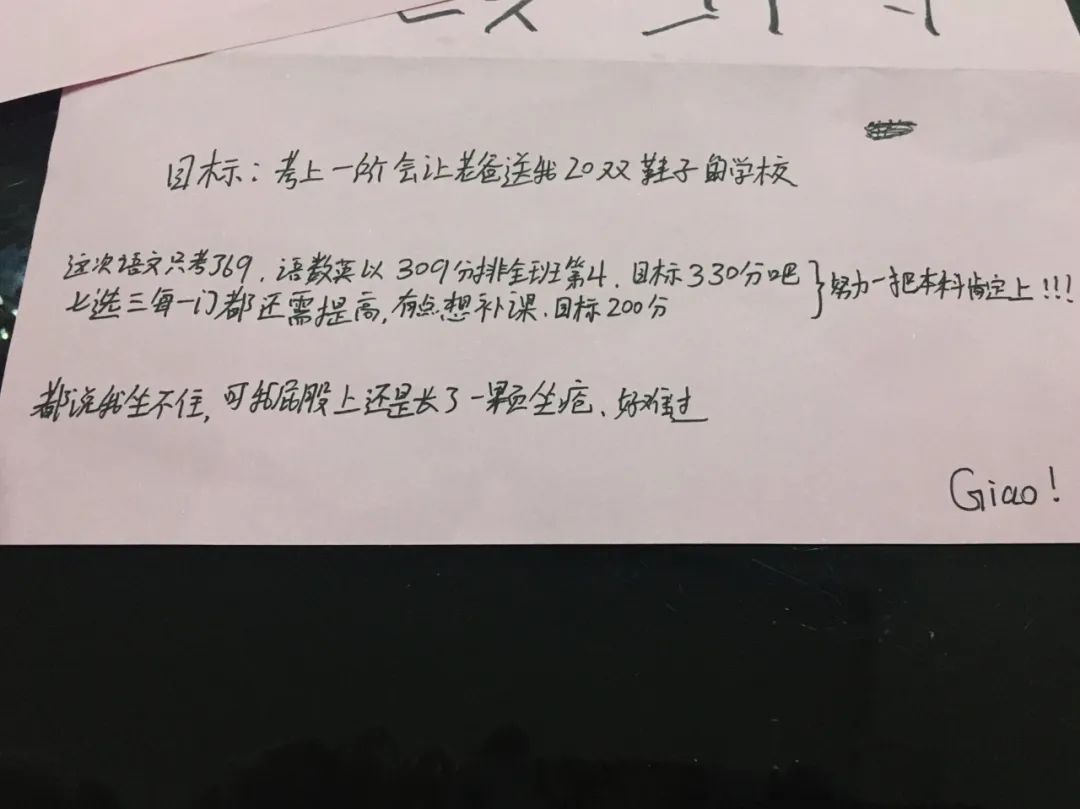 目标：考上一所会让老爸送我20双鞋子的学校
这次语文只考了69，语数英以309分排全班第4，目标330分吧
七选三每一门都还需提高，有点想补课，目标200分
努力一把本科肯定上!!!
都说我坐不住，可我屁股上还是长了一颗坐疮、好难过
Giao!